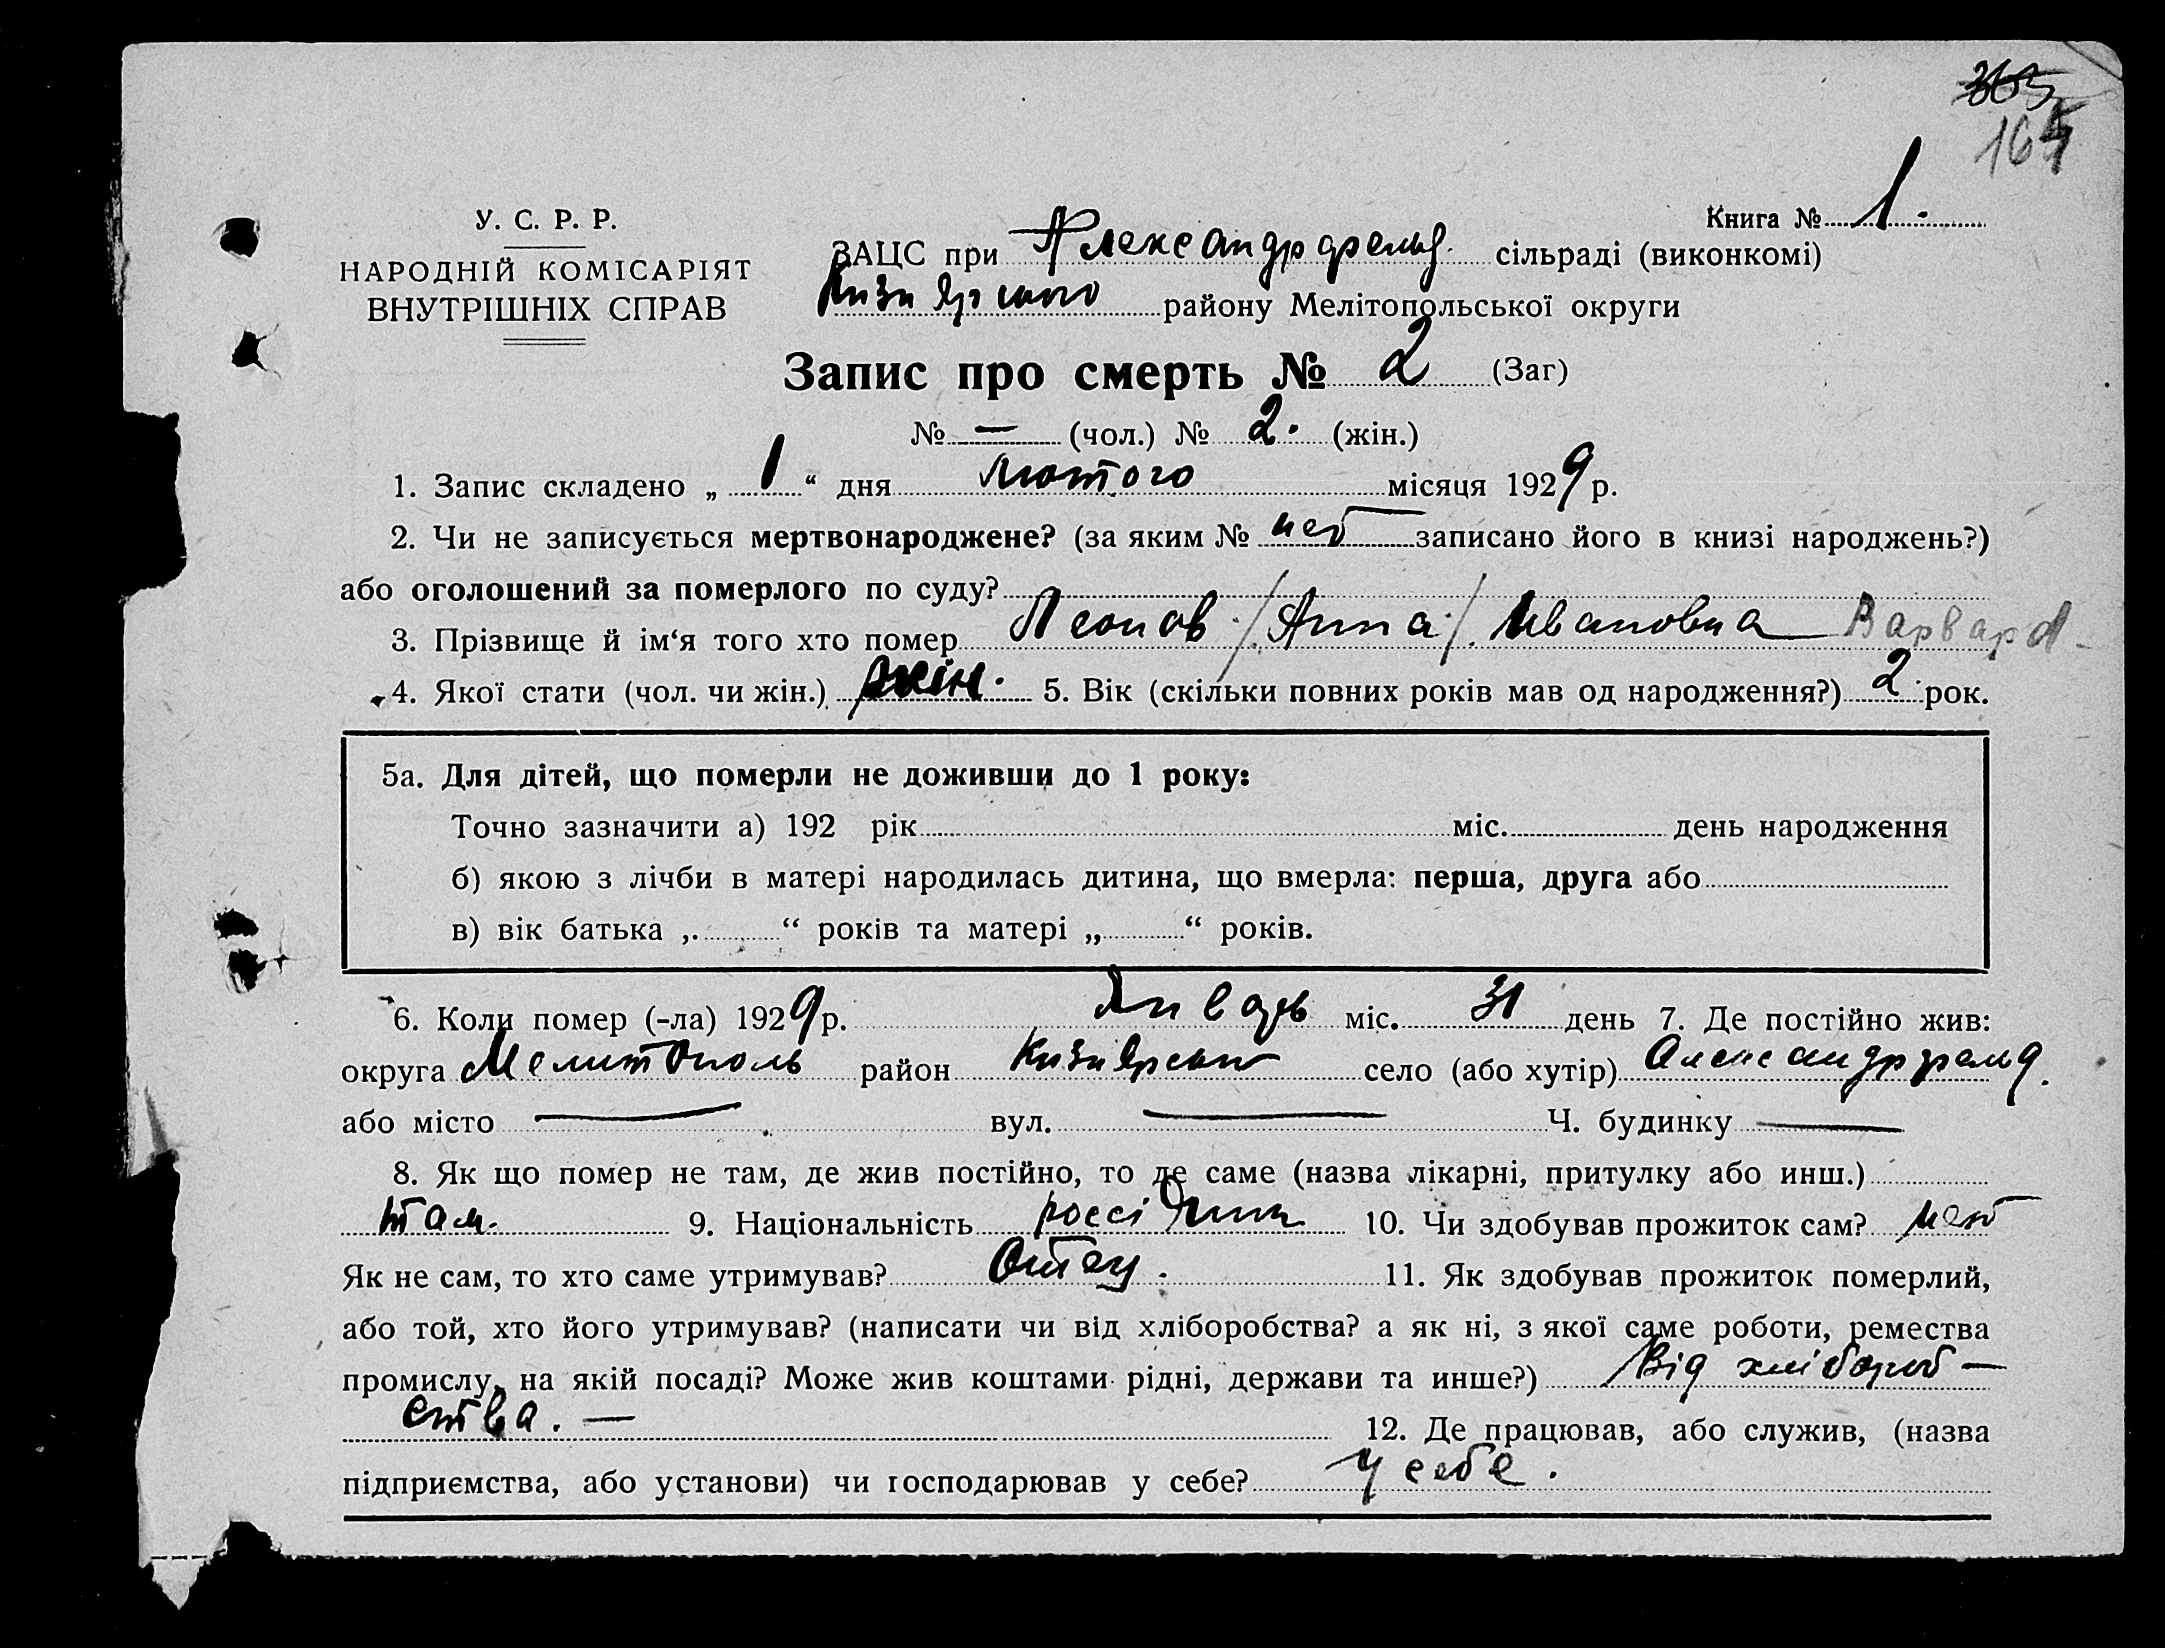 363
164
Книга № 1.
У. С. Р. Р.
НАРОДНІЙ КОМІСАРІЯТ
ВНУТРІШНІХ СПРАВ
ЗАЦС при Александрфельд. сільраді (виконкомі)
Кизиярського району Мелітопольської округи
Запис про смерть № 2 (Заг)
№ — (чол.) № 2. (жін.)
1. Запис складено „ 1 “ дня лютого місяця 1929 р.
2. Чи не записується мертвонароджене? (за яким № нет записано його в книзі народжень?)
або оголошений за померлого по суду?
3. Прізвище й ім‘я того хто помер Леонов /Анна/ Ивановна Варвара
4. Якої стати (чол. чи жін.) жін. 5. Вік (скільки повних років мав од народження?) 2 рок.
5а. Для дітей, що померли не доживши до 1 року:
Точно зазначити а) 192 рік міс. день народження
б) якою з лічби в матері народилась дитина, що вмерла: перша, друга або
в) вік батька „ “ років та матері „ “ років.
6. Коли помер (-ла) 1929 р. Январь міс. 31 день 7. Де постійно жив:
округа Мелитополь район Кизиярський село (або хутір) Александрфельд.
або місто — вул. — Ч. будинку —
8. Як що помер не там, де жив постійно, то де саме (назва лікарні, притулку або инш.)
там. 9. Національність 10. Чи здобував прожиток сам? нет
Як не сам, то хто саме утримував? Отец. 11. Як здобував прожиток померлий,
або той, хто його утримував? (написати чи від хліборобства? а як ні, з якої саме роботи, ремества
промислу, на якій посаді? Може жив коштами рідні, держави та инше?) Від хлібороб—
ства. — 12. Де працював, або служив, (назва
підприємства, або установи) чи господарював у себе? у себе.